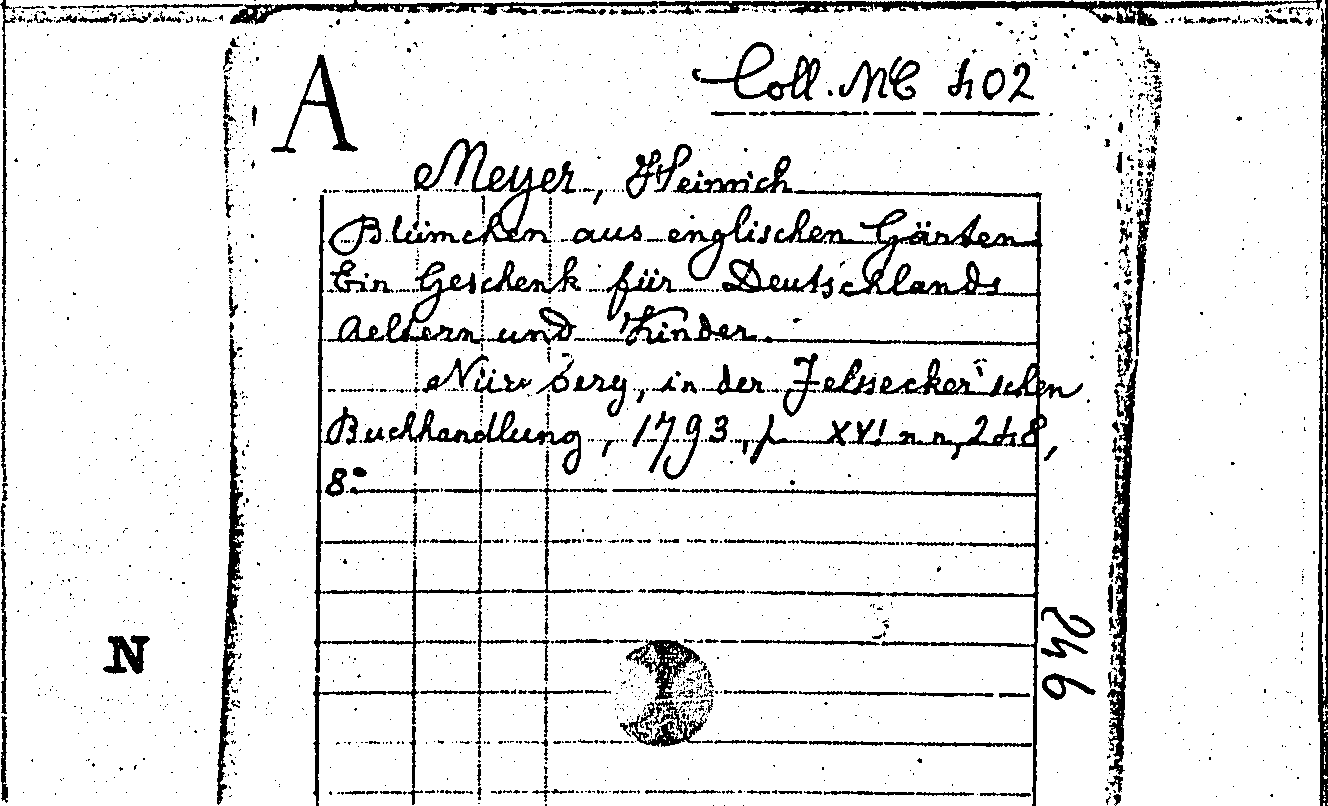 A
Coll. MC 402
Meyer, Heinrich
Blümchen aus englischen Gärten
Ein Geschenk für Deutschlands
Aeltern und Kinder.
Nürnberg, in der Felssecker'schen
Buchhandlung, 1793, p XVI n n, 248,
8:
N
246